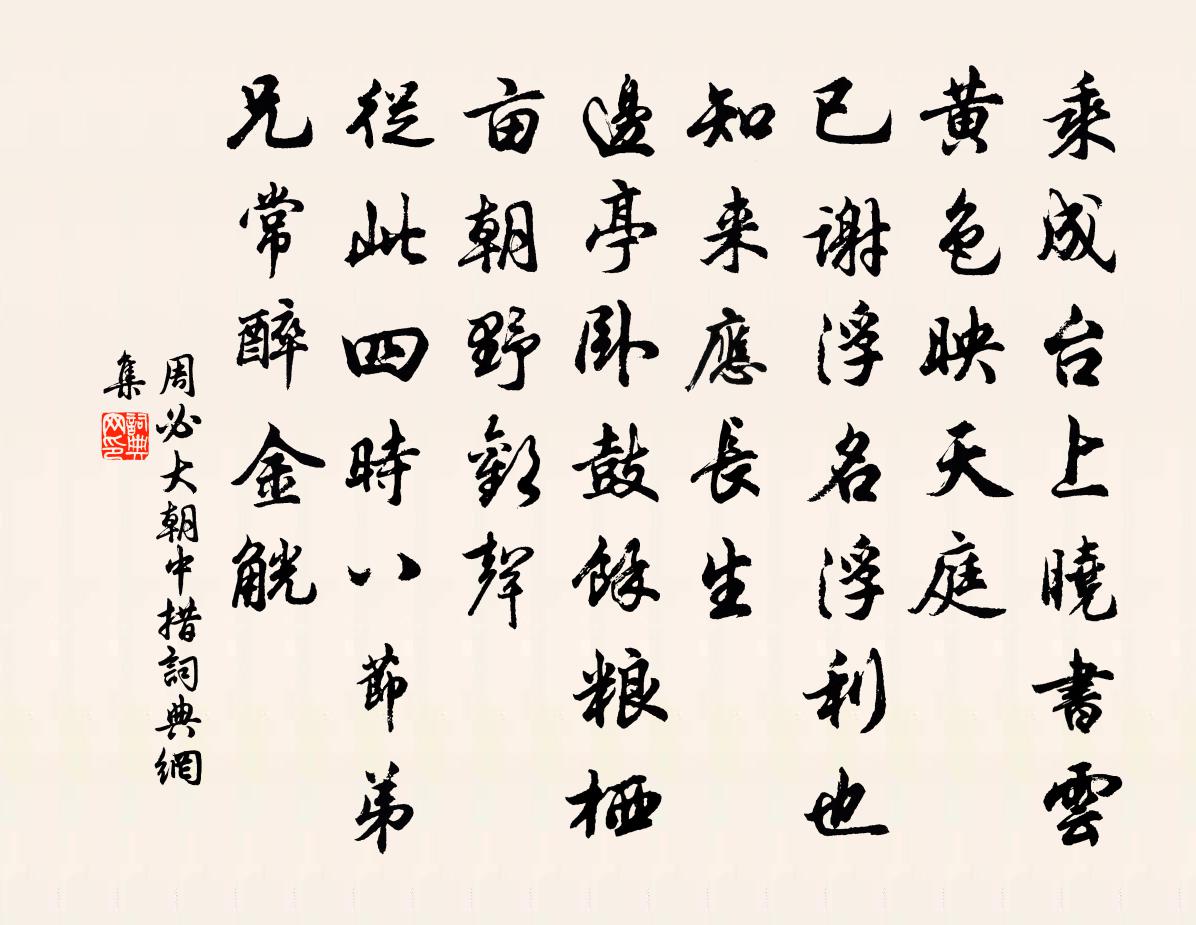 乘成台上曉書雲
黃色映天庭
已謝浮名浮利也
知来應長生
邊亭卧鼓餘粮栖
亩朝野歡聲
從此四時八節弟
兄常醉金觥
周必大朝中措詞典網
集
詞典网印